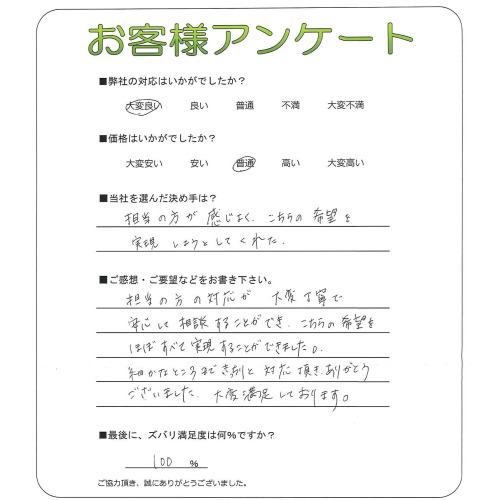 お客様アンケート
■弊社の対応はいかがでしたか？
大変良い 良い 普通 不満 大変不満
■価格はいかがでしたか？
大変安い 安い 普通 高い 大変高い
■当社を選んだ決め手は？
担当の方が感じよく、こちらの希望を
実現しようとしてくれた。
■ご感想・ご要望などをお書き下さい。
担当の方の対応が大変丁寧で
安心して相談することができ、こちらの希望を
ほぼすべて実現することができました。
細かなところまできちんと対応頂き、ありがとう
ございました。大変満足しております。
■最後に、ズバリ満足度は何％ですか？
100 ％
ご協力頂き、誠にありがとうございました。